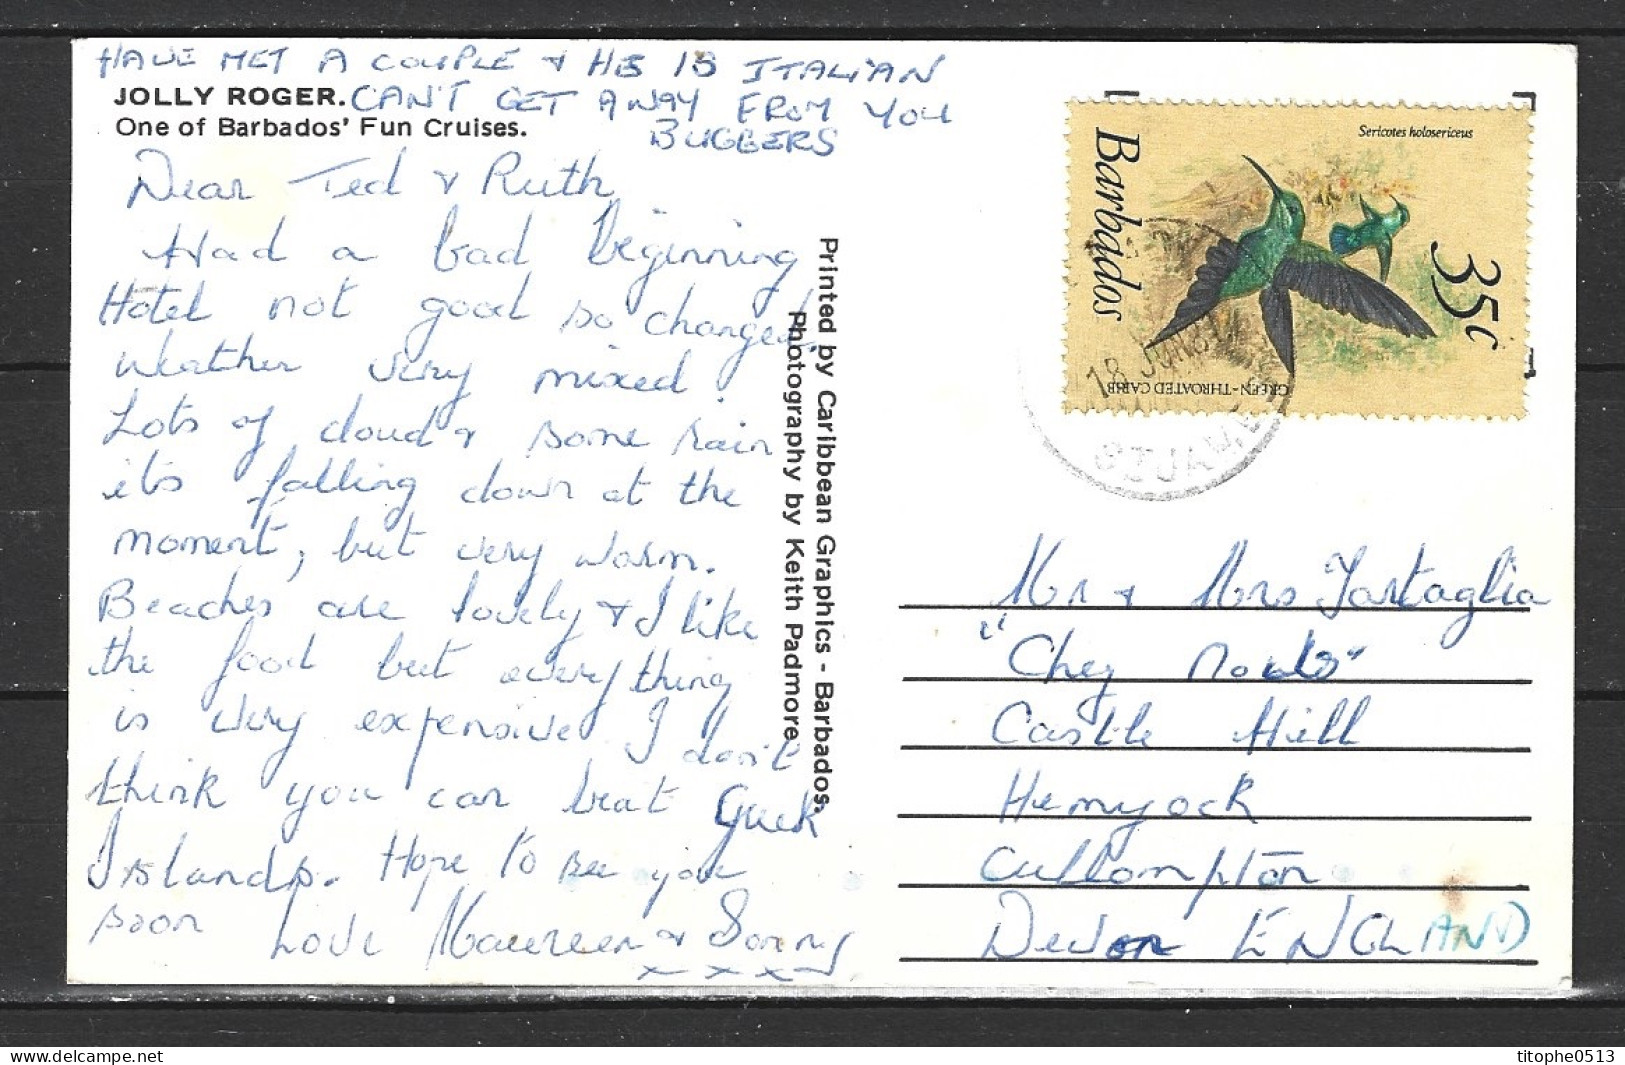 HAVE MET A COUPLE & HE IS ITALIAN
CAN'T GET AWAY FROM YOU
BUGGERS
JOLLY ROGER.
One of Barbados' Fun Cruises.
Dear Ted & Ruth
Had a bad beginning
Hotel not good so changed.
Weather very mixed.
Lots of cloud & some rain
its falling down at the
moment, but very warm.
Beaches are lovely & I like
the food but everything
is very expensive I don't
think you can beat Greek
Islands. Hope to see you
soon
Love Maureen & Sonny
x x x x
Printed by Caribbean Graphics - Barbados.
Photography by Keith Padmore.
Sericotes holosericeus
Barbados
35c
GREEN-THROATED CARIB
18 JUN
Mr & Mrs Tartaglia
"Chez Nous"
Castle Hill
Hemyock
Cullompton
Devon ENGLAND
titophe0513